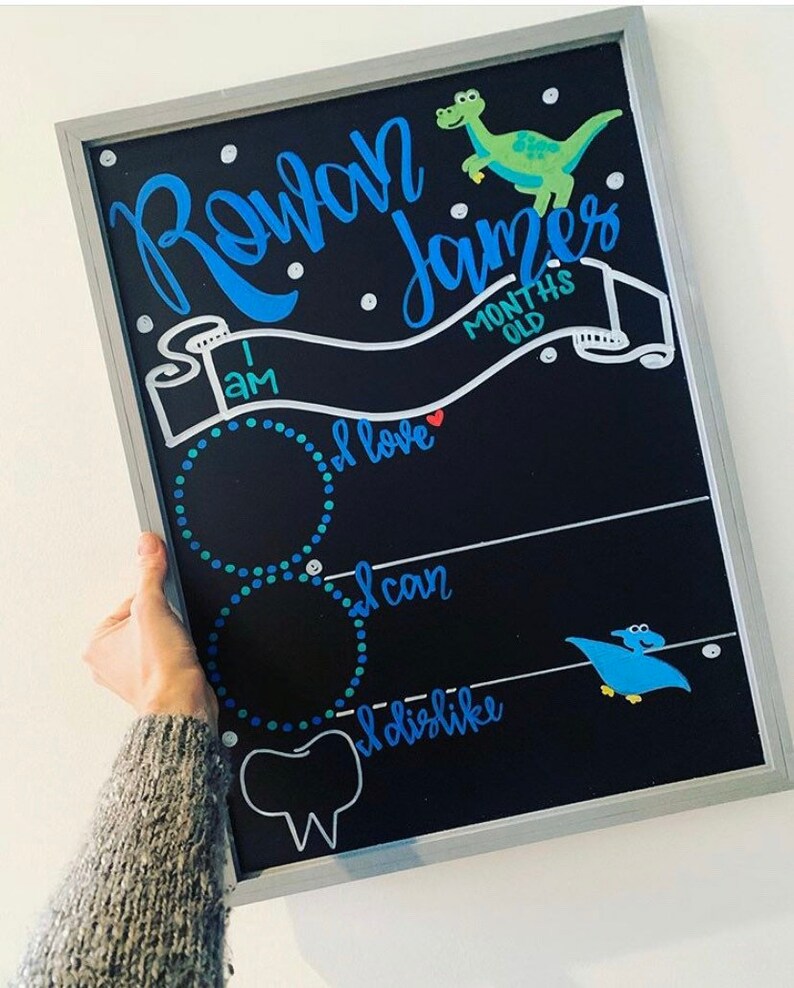 Rowan
James
I
am
MONTHS
OLD
I love
I can
I dislike